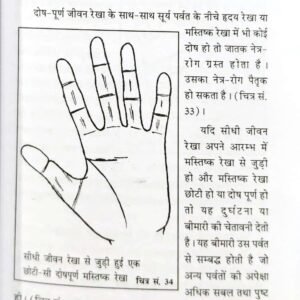 दोष-पूर्ण जीवन रेखा के साथ-साथ सूर्य पर्वत के नीचे हृदय रेखा या
मस्तिष्क रेखा में भी कोई
दोष हो तो जातक नेत्र-
रोग ग्रस्त होता है ।
उसका नेत्र-रोग पैतृक
हो सकता है । (चित्र सं.
33) ।
यदि सीधी जीवन
रेखा अपने आरम्भ में
मस्तिष्क रेखा से जुड़ी
हो और मस्तिष्क रेखा
छोटी हो या दोष पूर्ण हो
तो यह दुर्घटना या
बीमारी की चेतावनी देती
है । यह बीमारी उस पर्वत
से सम्बद्ध होती है जो
अन्य पर्वतों की अपेक्षा
अधिक सबल तथा पुष्ट
सीधी जीवन रेखा से जुड़ी हुई एक
छोटी-सी दोषपूर्ण मस्तिष्क रेखा
चित्र सं. 34
हो ।